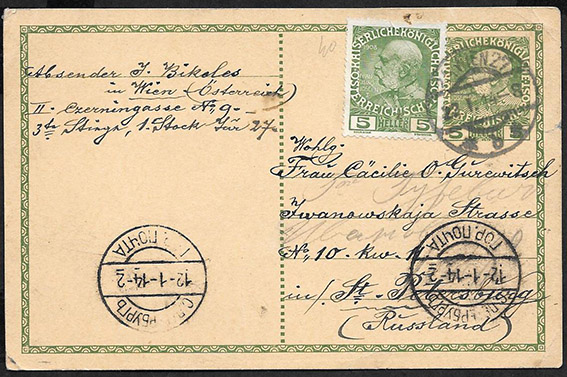 Absender J. Bikeles
in Wien (Österreich)
II - Czerningasse No 9 -
3te Stiege, 1. Stock Tür 27.
40
1908
KAISERLICHE KÖNIGLICHE
ÖSTERREICHISCHE
5 HELLER 5
WIEN
5 5
Wohlg.
Frau Cäcilie O. Gurewitsch
Iwanowskaja Strasse
No. 10 - kw. 11
in/ St. Petersburg
(Russland)
ГОР. ПОЧТА
12-1-14-2
С.ПЕТЕРБУРГЪ
ГОР. ПОЧТА
12-1-14-2